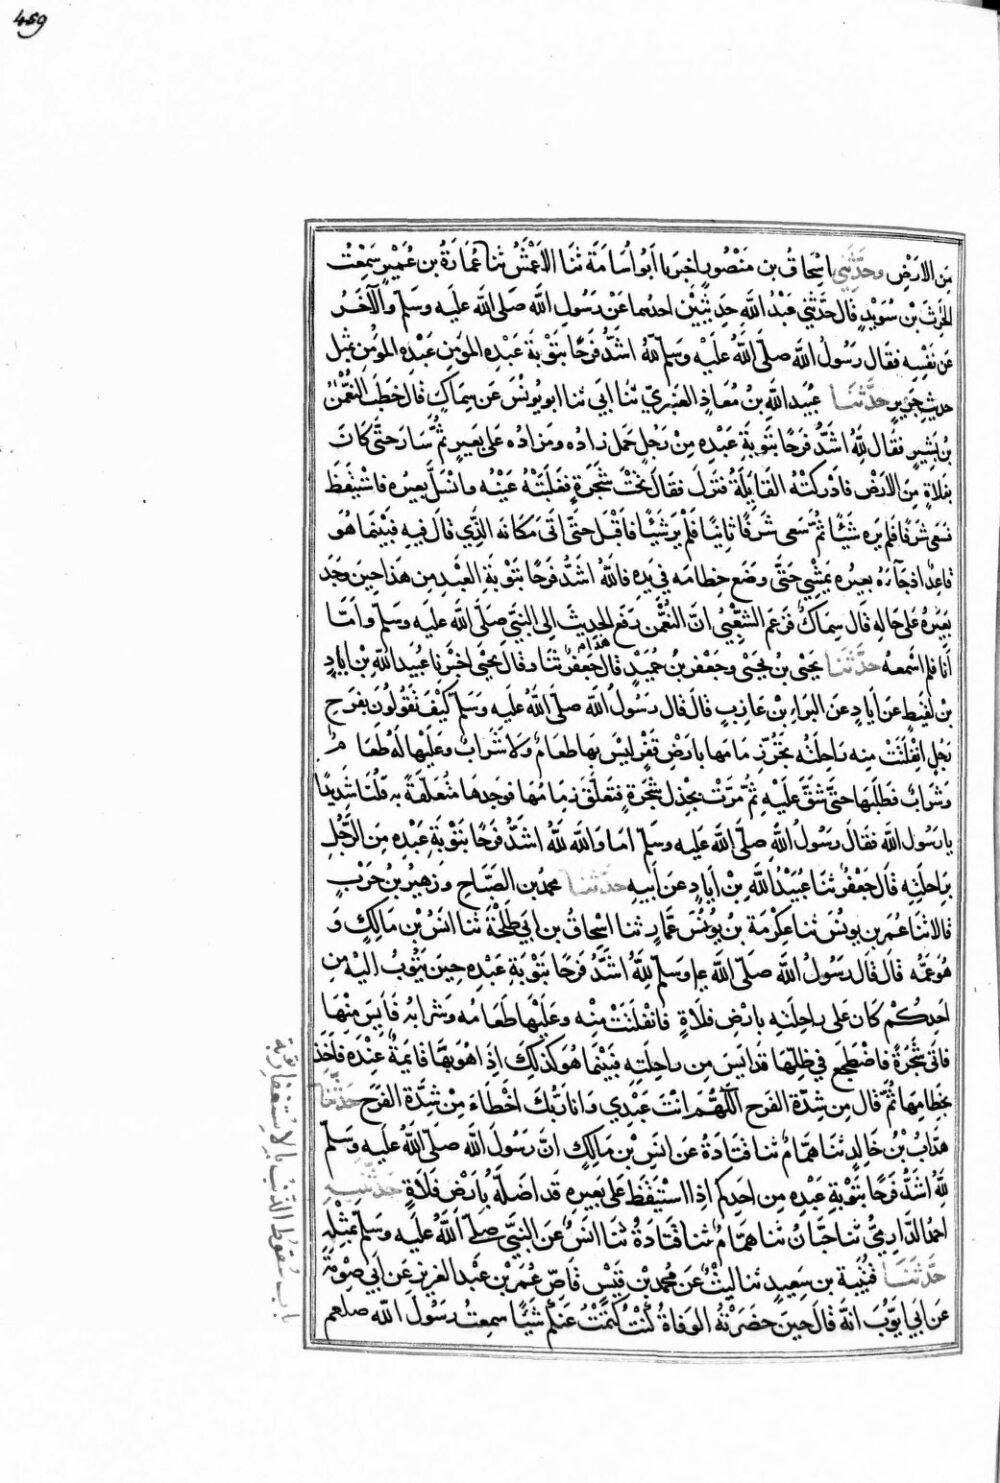 459
مِن الارْضِ وحَدَّثَنِي اسْحاقُ بن مَنْصُورٍ اخبرنا ابُو اُسَامَةَ ثنَا الاَعْمَشُ ثنا عُمَارَةُ بن عُمَيْرٍ سَمِعْتُ
الحٰرِثَ بْن سُوَيْدٍ قال حَدَّثَنِي عَبْدُ اللّه حَدِيثَيْنِ احدهما عَنْ رَسُولِ اللّه صَلى اللّه عليه وسَلم والآخَرُ
عَن نَفْسِهِ فقال رَسُولُ اللّه صلّى اللّه عَلَيْه وَسَلم للّهُ اشَدُّ فَرَحًا بتَوْبَةِ عَبْدِهِ المؤمِنِ عَبْدِهِ المُؤمِنِ بمِثْلِ
حديثِ جَرِيرٍ حدَّثَنَا عُبَيد اللَّهِ بنُ مُعَاذٍ العَنبَرِيّ ثنا ابي ثنا ابو يُونْسَ عَن سِماكٍ قال خطَبَ النُّعْمٰنُ
بْنُ بَشِيرٍ فقال للّهُ اشَدُّ فرَحًا بتَوبَةِ عَبْدِهِ مِنْ رَجُلٍ حَمل زاده ومَزاده على بَعِيرٍ ثُمَّ سَارَ حَتَّى كَانَ
بفَلاةٍ مِّنَ الاَرْضِ فادْركَتْهُ القَايلَةُ فنَزَل فقَالَ تحْتَ شَجَرَةٍ فغَلَبَتْهُ عَيْنُه وانْسَلَّ بعِيره فاسْتَيْقَظَ
فسَعى شَرَفًا فلم يَره شَيْئًا ثمّ سَعى شرَفًا ثانِيًا فَلَمْ يَرَ شَيْئًا فاَقْبَلَ حتّى اَتى مَكانَه الَّذِي قالَ فيهِ فبَيْنَما هُوَ
قاعِدٌ اذ جَآءَهُ بعيره يَمْشِي حَتَّى وضَع خِطامَه في يَدِهِ فاللّهُ اشَدُّ فرَحًا بتَوْبَةِ العَبْدِ مِن هَذَا حِينَ وجَدَ
بعِيرهُ على حَالِهِ قَال سِماكٌ فزَعَم الشَّعْبِيُّ انَّ النُّعْمٰنَ رَفَع الحدِيثَ الى النبيّ صَلَّى اللّه عليه وسَلم واَمَّا
اَنَا فلَم اسْمعه حَدَّثَنَا يَحْيى بن يَحْيى وجَعْفر بْن حُمَيْدٍ قال جَعْفَرٌ ثنا وقال يحْيى اخبَرنا عُبيد اللَّهِ بْن ايادِ
بْن لَقِيطٍ عَن ايادٍ عَن البَراءِ بْن عَازِبٍ قالَ قال رَسُولُ اللّه صلّى اللّه عليه وَسَلم كَيْفَ تَقُولُونَ بفَرَحِ
رَجُلٍ انْفَلَتَتْ مِنه رَاحِلَتُه تَجُرُّ زِمَامَها بارْضٍ قَفْرٍ ليْسَ بِها طعَامٌ ولاَ شَرابٌ وعَلَيْها لَهُ طَعَامٌ
وَشَرَابٌ فطَلَبها حتَّى شَقَّ عَلَيْه ثمَّ مَرّتْ بجِذْلِ شَجَرَةٍ فتَعَلَّقَ زِمامُها فوَجدها مُتَعَلّقَةً بهِ قُلْنا شديدًا
يا رَسُولَ اللّه فقالَ رَسُولُ اللّهِ صَلّى اللّه عليه وسَلم امَا وَاللّه للّهُ اشدُّ فَرحًا بَتَوْبَةِ عَبْدِهِ مِنَ الرَّجُلِ
بِرَاحِلَتِهِ قال جَعْفَرٌ ثنا عُبَيْدُ اللّه بْن اياد عَن ابيه حَدَّثَنَا محمدُ بن الصَّباح وزهيرُ بنُ حَرْبٍ
قالا ثنا عُمَر بن يونُسَ ثنا عِكْرمَة بْن يُونُسَ عَمَّارٍ ثنا اسْحاقُ بن ابي طَلْحَةَ ثنا انَسُ بْن مَالِكٍ وَ
هُوَ عَمُّه قالَ قال رَسُولُ اللّه صَلّى اللّه عليه وسَلم للّهُ اشَدُّ فَرَحًا بتَوْبَةِ عَبدِهِ حِينَ يَتُوبُ اليْهِ مِن
احَدِكُمْ كان على راحِلَتِهِ بارْضٍ فلاَةٍ فانْفَلَتَتْ مِنْه وعَلَيْها طعَامُه وشَرابُه فاَيسَ مِنْها
فاتَى شَجَرَةً فاضْطجع في ظِلّها قد ايَسَ مِن راحِلَتِهِ فبَيْنَما هُوَ كذلِكَ اذِ هُوَ بهَا قايمةٌ عِنْدَه فاَخَذ
بخِطامِها ثمَّ قال مِن شِدّة الفَرح اللّهُمّ انْتَ عَبْدِي وَانا ربُّكَ اخْطاءَ مِنْ شِدَّةِ الفَرَح حَدَّثَنَا
هَدّابُ بْنُ خالدٍ ثنا هَمّامٌ ثنا قتادَةُ عَن انَسِ بْن مَالِكٍ انَّ رَسُولَ اللّه صَلّى اللّهُ عليه وسَلم قال
للّهُ اشَدُّ فرَحًا بتَوْبَةِ عَبْدِهِ مِن احَدِكم اِذا اسْتَيْقَظ على بَعِيرِهِ قد اضَلّهُ بارْضِ فَلاَةٍ حَدَّثَنِيهِ
احمدُ الدَّارِمِيُّ ثنا حَبَّانُ ثنا هَمّامٌ ثنا قَتادَةُ ثنا انَسٌ عَنِ النبيّ صلّى اللّه عليه وَسلم بمِثْلِهِ
حَدَّثَنَا قُتَيْبَة بن سَعِيدٍ ثنا ليثٌ عَن محمدِ بْن قيْسٍ قاصِّ عُمَرَ بْنِ عَبد العَزِيز عَن ابي صِرْمَةَ
عَن ابي ايُّوبَ انَّه قَالَ حِينَ حَضَرَتْهُ الوَفاةُ كُنْتُ كَتَمْتُ عَنكُمْ شَيًا سَمِعتُ رَسُولَ اللّه صلعم
باب سُقوطِ الذّنبِ بالاسْتِغْفارِ توبةً